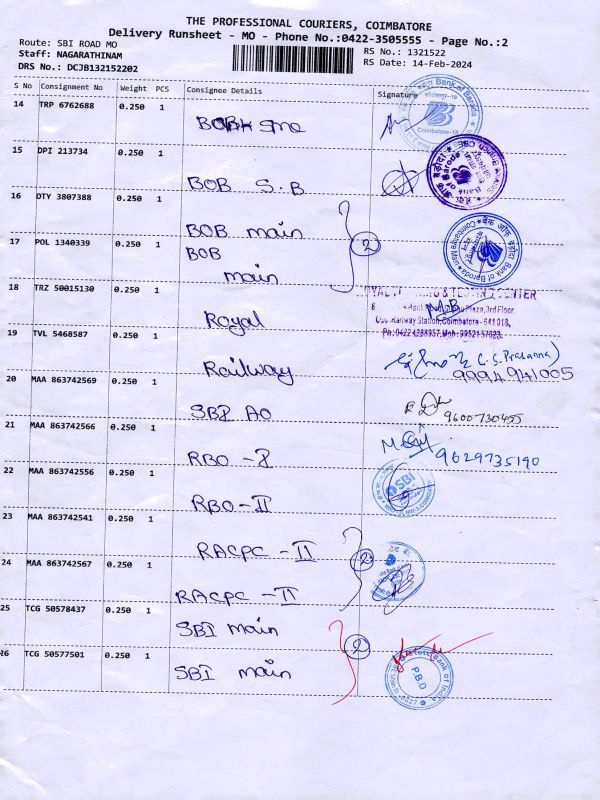 THE PROFESSIONAL COURIERS, COIMBATORE
Delivery Runsheet - MO - Phone No.:0422-3505555 - Page No.:2
Route: SBI ROAD MO
RS No.: 1321522
Staff: NAGARATHINAM
RS Date: 14-Feb-2024
DRS No.: DCJB132152202
S No Consignment No Weight PCS Consignee Details Signature
14 TRP 6762688 0.250 1
Bank of Baroda
Coimbatore-18
15 DPI 213734 0.250 1
BOB S.B
Bank of Baroda
16 DTY 3807388 0.250 1
BOB main
2
17 POL 1340339 0.250 1
BOB
main
बैंक ऑफ़ बड़ौदा
Bank of Baroda
18 TRZ 50015130 0.250 1
Royal
CENTER
Plaza,3rd Floor,
Railway Station,Coimbatore-641018,
19 TVL 5468587 0.250 1
Railway
C.S. Prasanna)
20 MAA 863742569 0.250 1
SBI AO
9600730455
21 MAA 863742566 0.250 1
RBO -I
9629735190
22 MAA 863742556 0.250 1
RBO-II
SBI
23 MAA 863742541 0.250 1
RACPC -II
2
24 MAA 863742567 0.250 1
RACPC -II
25 TCG 50578437 0.250 1
SBI main
2
26 TCG 50577501 0.250 1
SBI main
State Bank of India
P.B.D